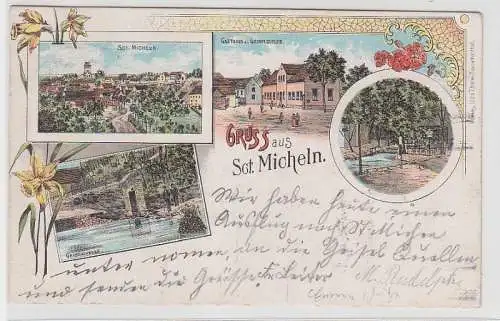 Sct. Micheln
Gasthaus z. Geiselquelle
Gruss aus
Sct. Micheln.
Geiselquelle
Wir haben heute einen
Ausflug nach St. Micheln
unter nomen, an die Geisel Quellen
und senden die Grüsse
M. Rudolph